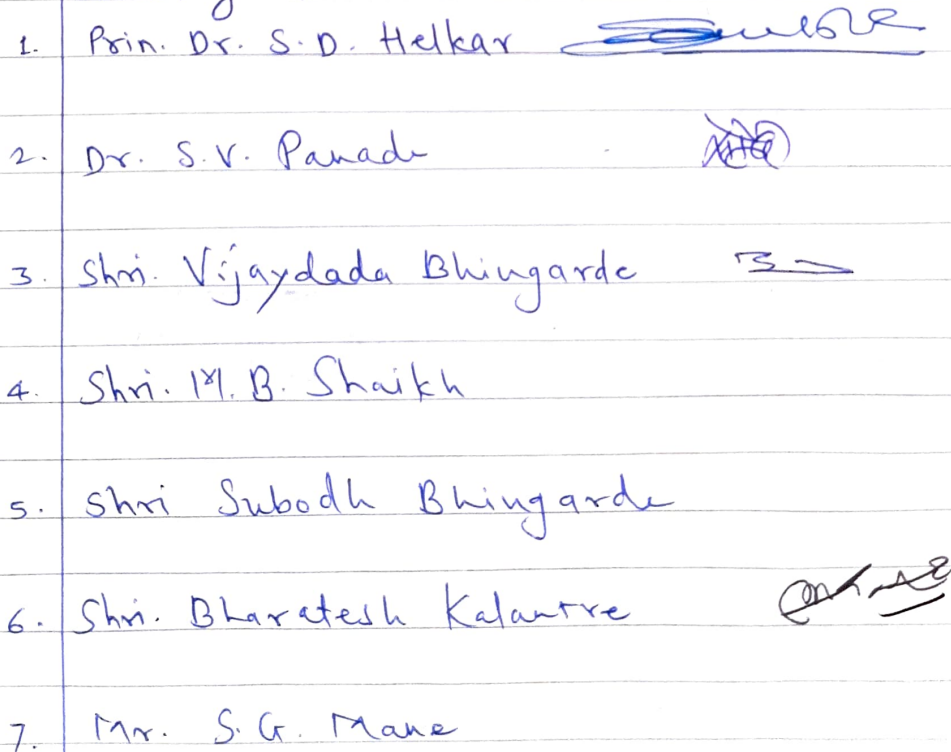 1. Prin. Dr. S. D. Helkar
2. Dr. S. V. Panade
3. Shri. Vijaydada Bhingarde
4. Shri. M. B. Shaikh
5. Shri Subodh Bhingarde
6. Shri. Bharatesh Kalantre
7. Mr. S. G. Mane